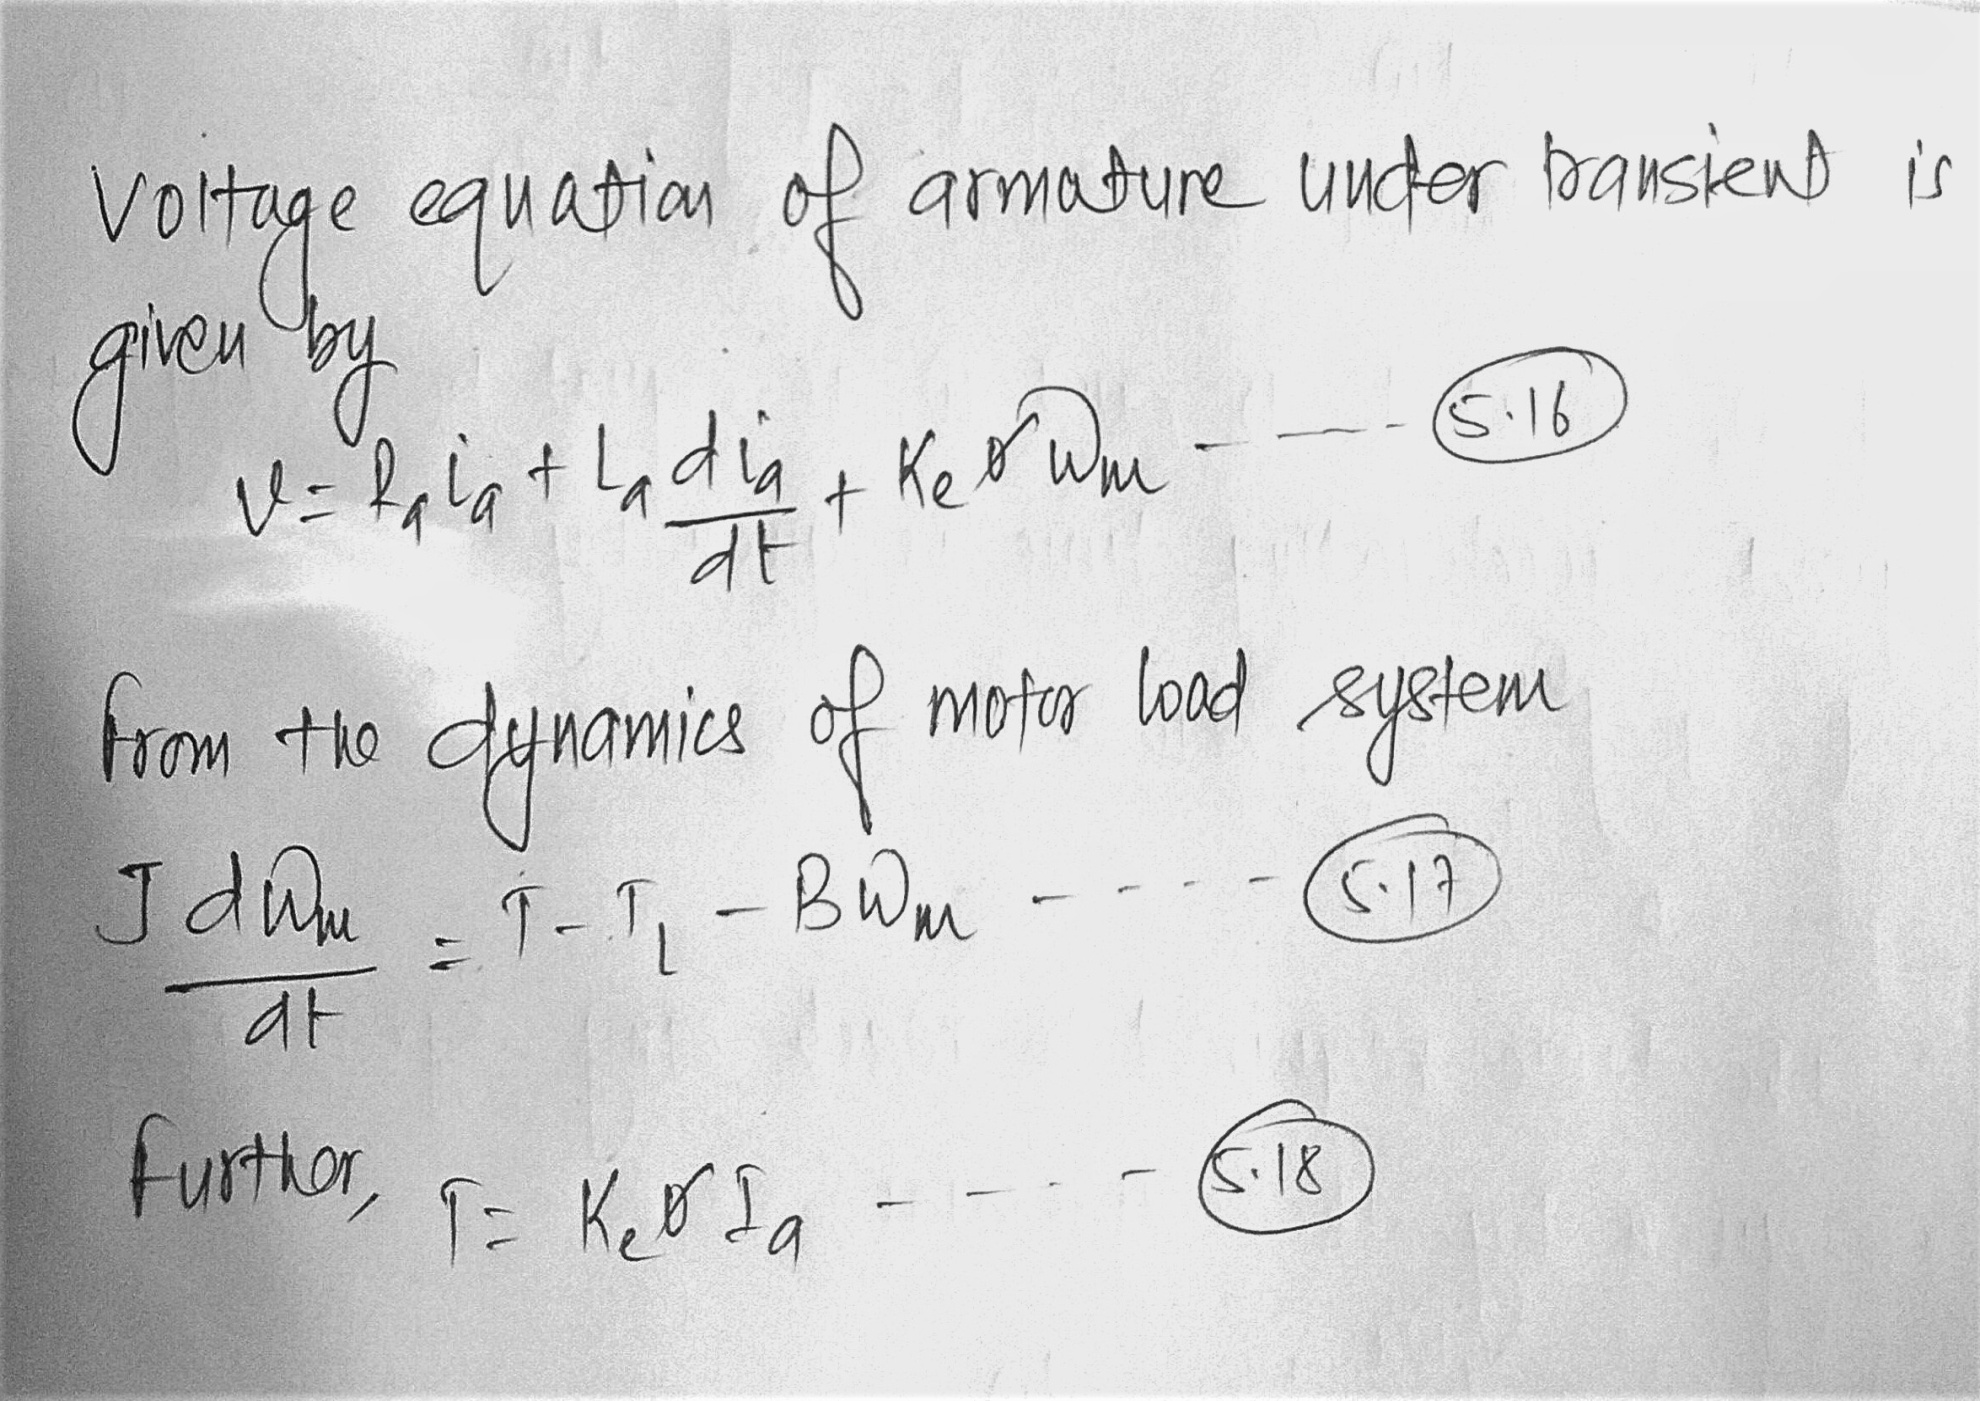 Voltage equation of armature under transient is
given by
v = Ra ia + La dia/dt + Ke Ø ωm ---- 5.16
From the dynamics of motor load system
J dωm/dt = T - Tl - Bωm ----- 5.17
Further, T = Ke Ø Ia ----- 5.18